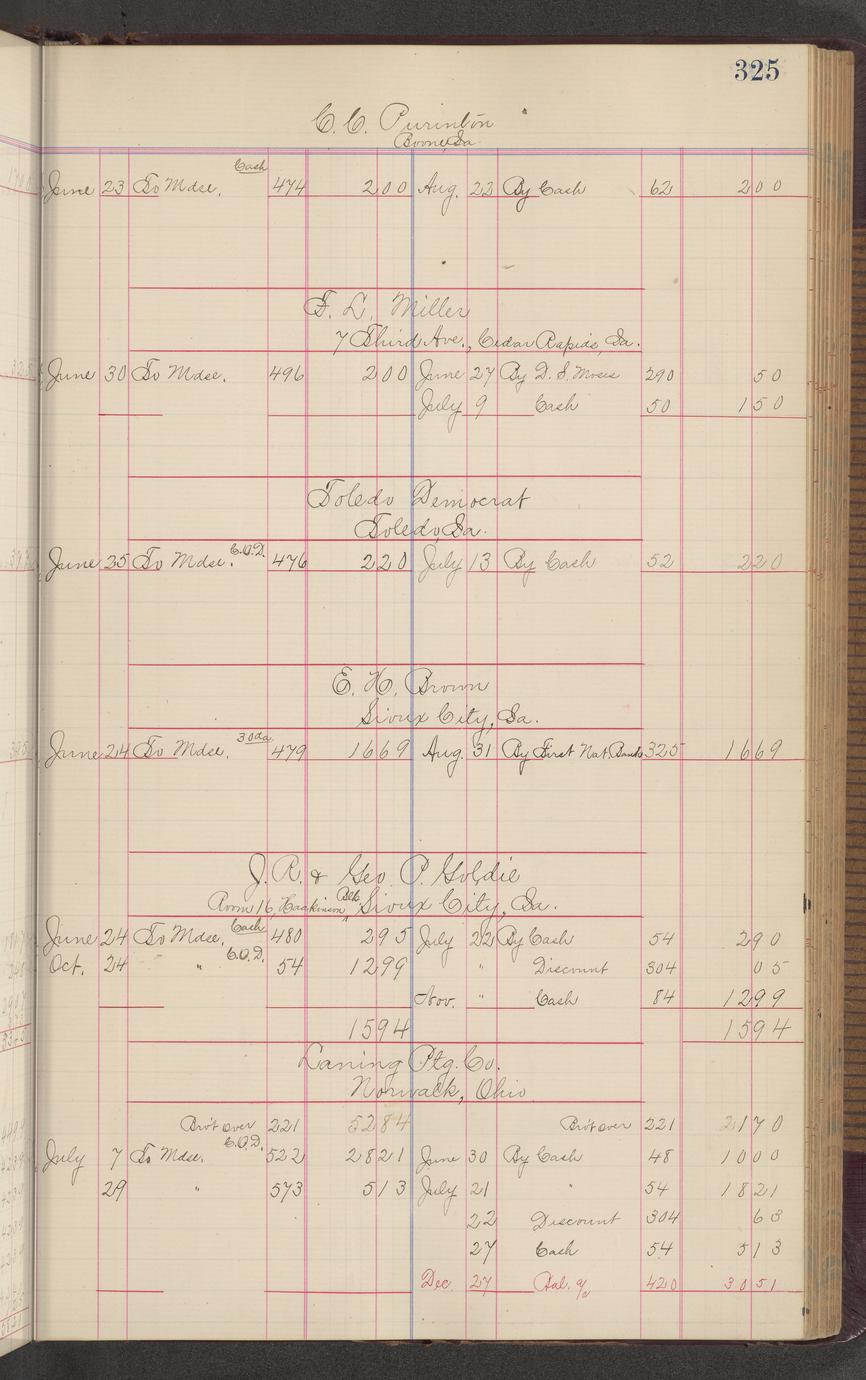 325
C. C. Purinton
Boone, Ia.
Cash
June 23 To Mdse. 474 200 Aug. 22 By Cash 62 200
F. L. Miller
7 Third Ave., Cedar Rapids, Ia.
June 30 To Mdse. 496 200 June 27 By D. S. Moses 290 50
July 9 Cash 50 150
Toledo Democrat
Toledo, Ia.
June 25 To Mdse. C.O.D. 476 220 July 13 By Cash 52 220
E. H. Brown
Sioux City, Ia.
June 24 To Mdse. 30 da. 479 1669 Aug. 31 By First Nat. Bank 325 1669
J. R. & Geo. P. Goldie
Room 16, Haakinson Blk, Sioux City, Ia.
June 24 To Mdse. Cash 480 295 July 22 By Cash 54 290
Oct. 24 " C.O.D. 54 1299 " Discount 304 05
Nov. " Cash 84 1299
1594 1594
Laning Ptg. Co.
Norwalk, Ohio
Bro't over 221 5284 Bro't over 221 2170
July 7 To Mdse. C.O.D. 522 2821 June 30 By Cash 48 1000
29 " 573 513 July 21 " 54 1821
22 Discount 304 63
27 Cash 54 513
Dec. 27 Bal. a/c 420 3051